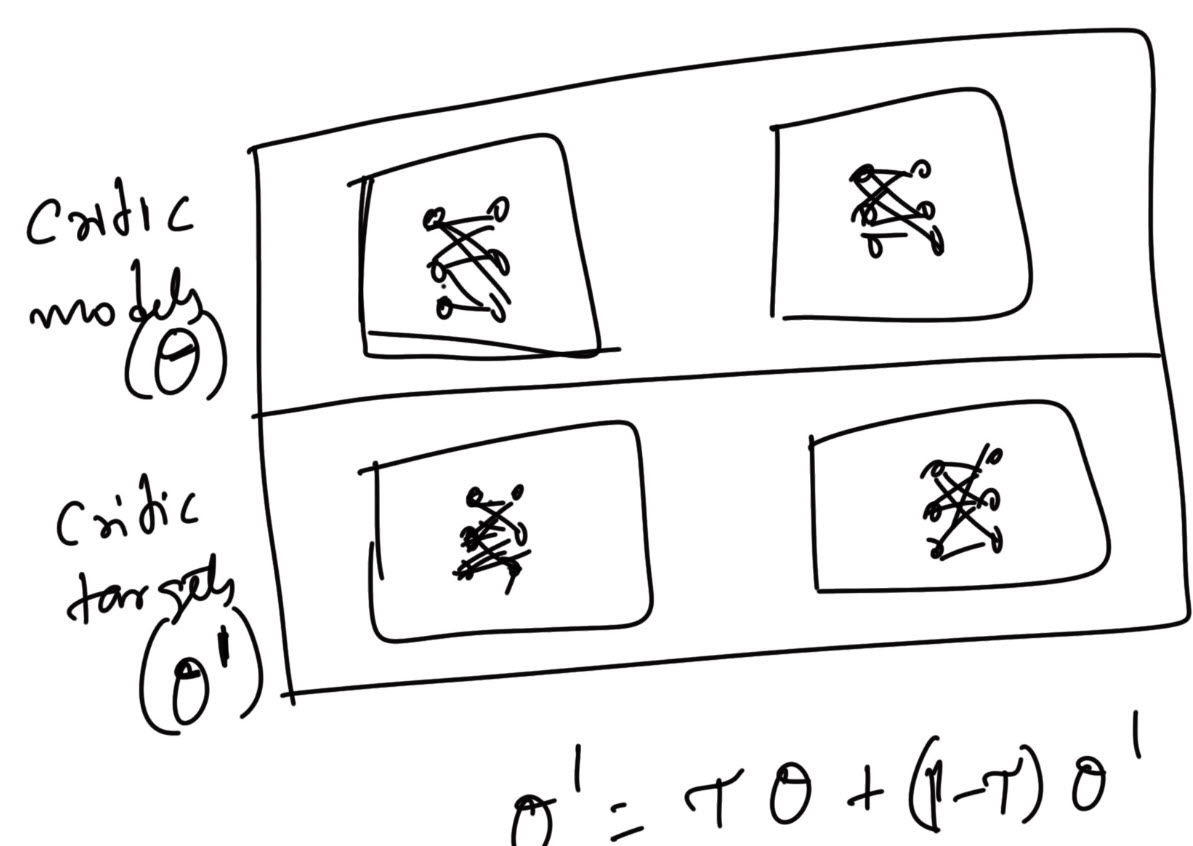 Critic
models
(θ)
Critic
targets
(θ')
θ' = τ θ + (1-τ) θ'